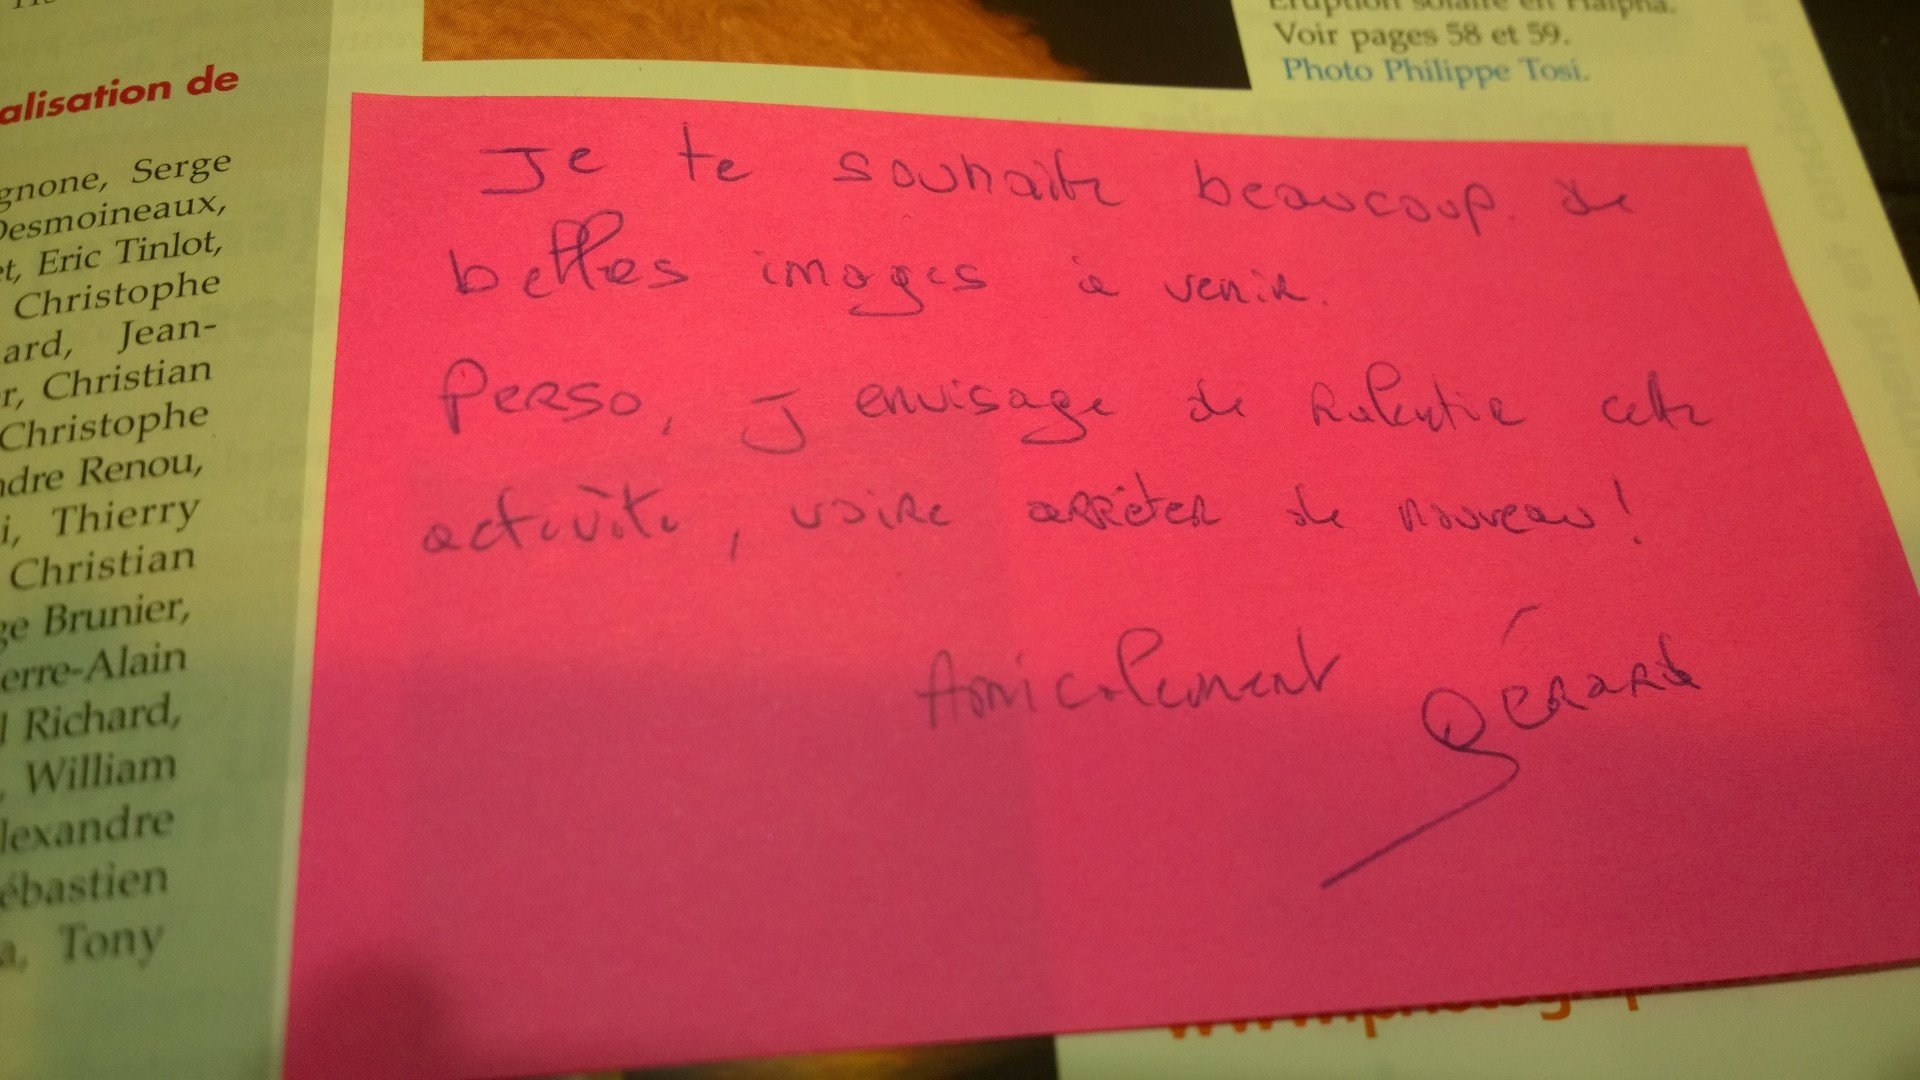 alisation de
gnone, Serge
Desmoineaux,
t, Eric Tinlot,
Christophe
ard, Jean-
r, Christian
Christophe
ndre Renou,
i, Thierry
Christian
ge Brunier,
erre-Alain
l Richard,
, William
lexandre
ébastien
a, Tony
Eruption solaire en Halpha.
Voir pages 58 et 59.
Photo Philippe Tosi.
Je te souhaite beaucoup de
belles images à venir.
Perso, j envisage de ralentir cette
activité, voire arrêter de nouveau !
Amicalement Gérard